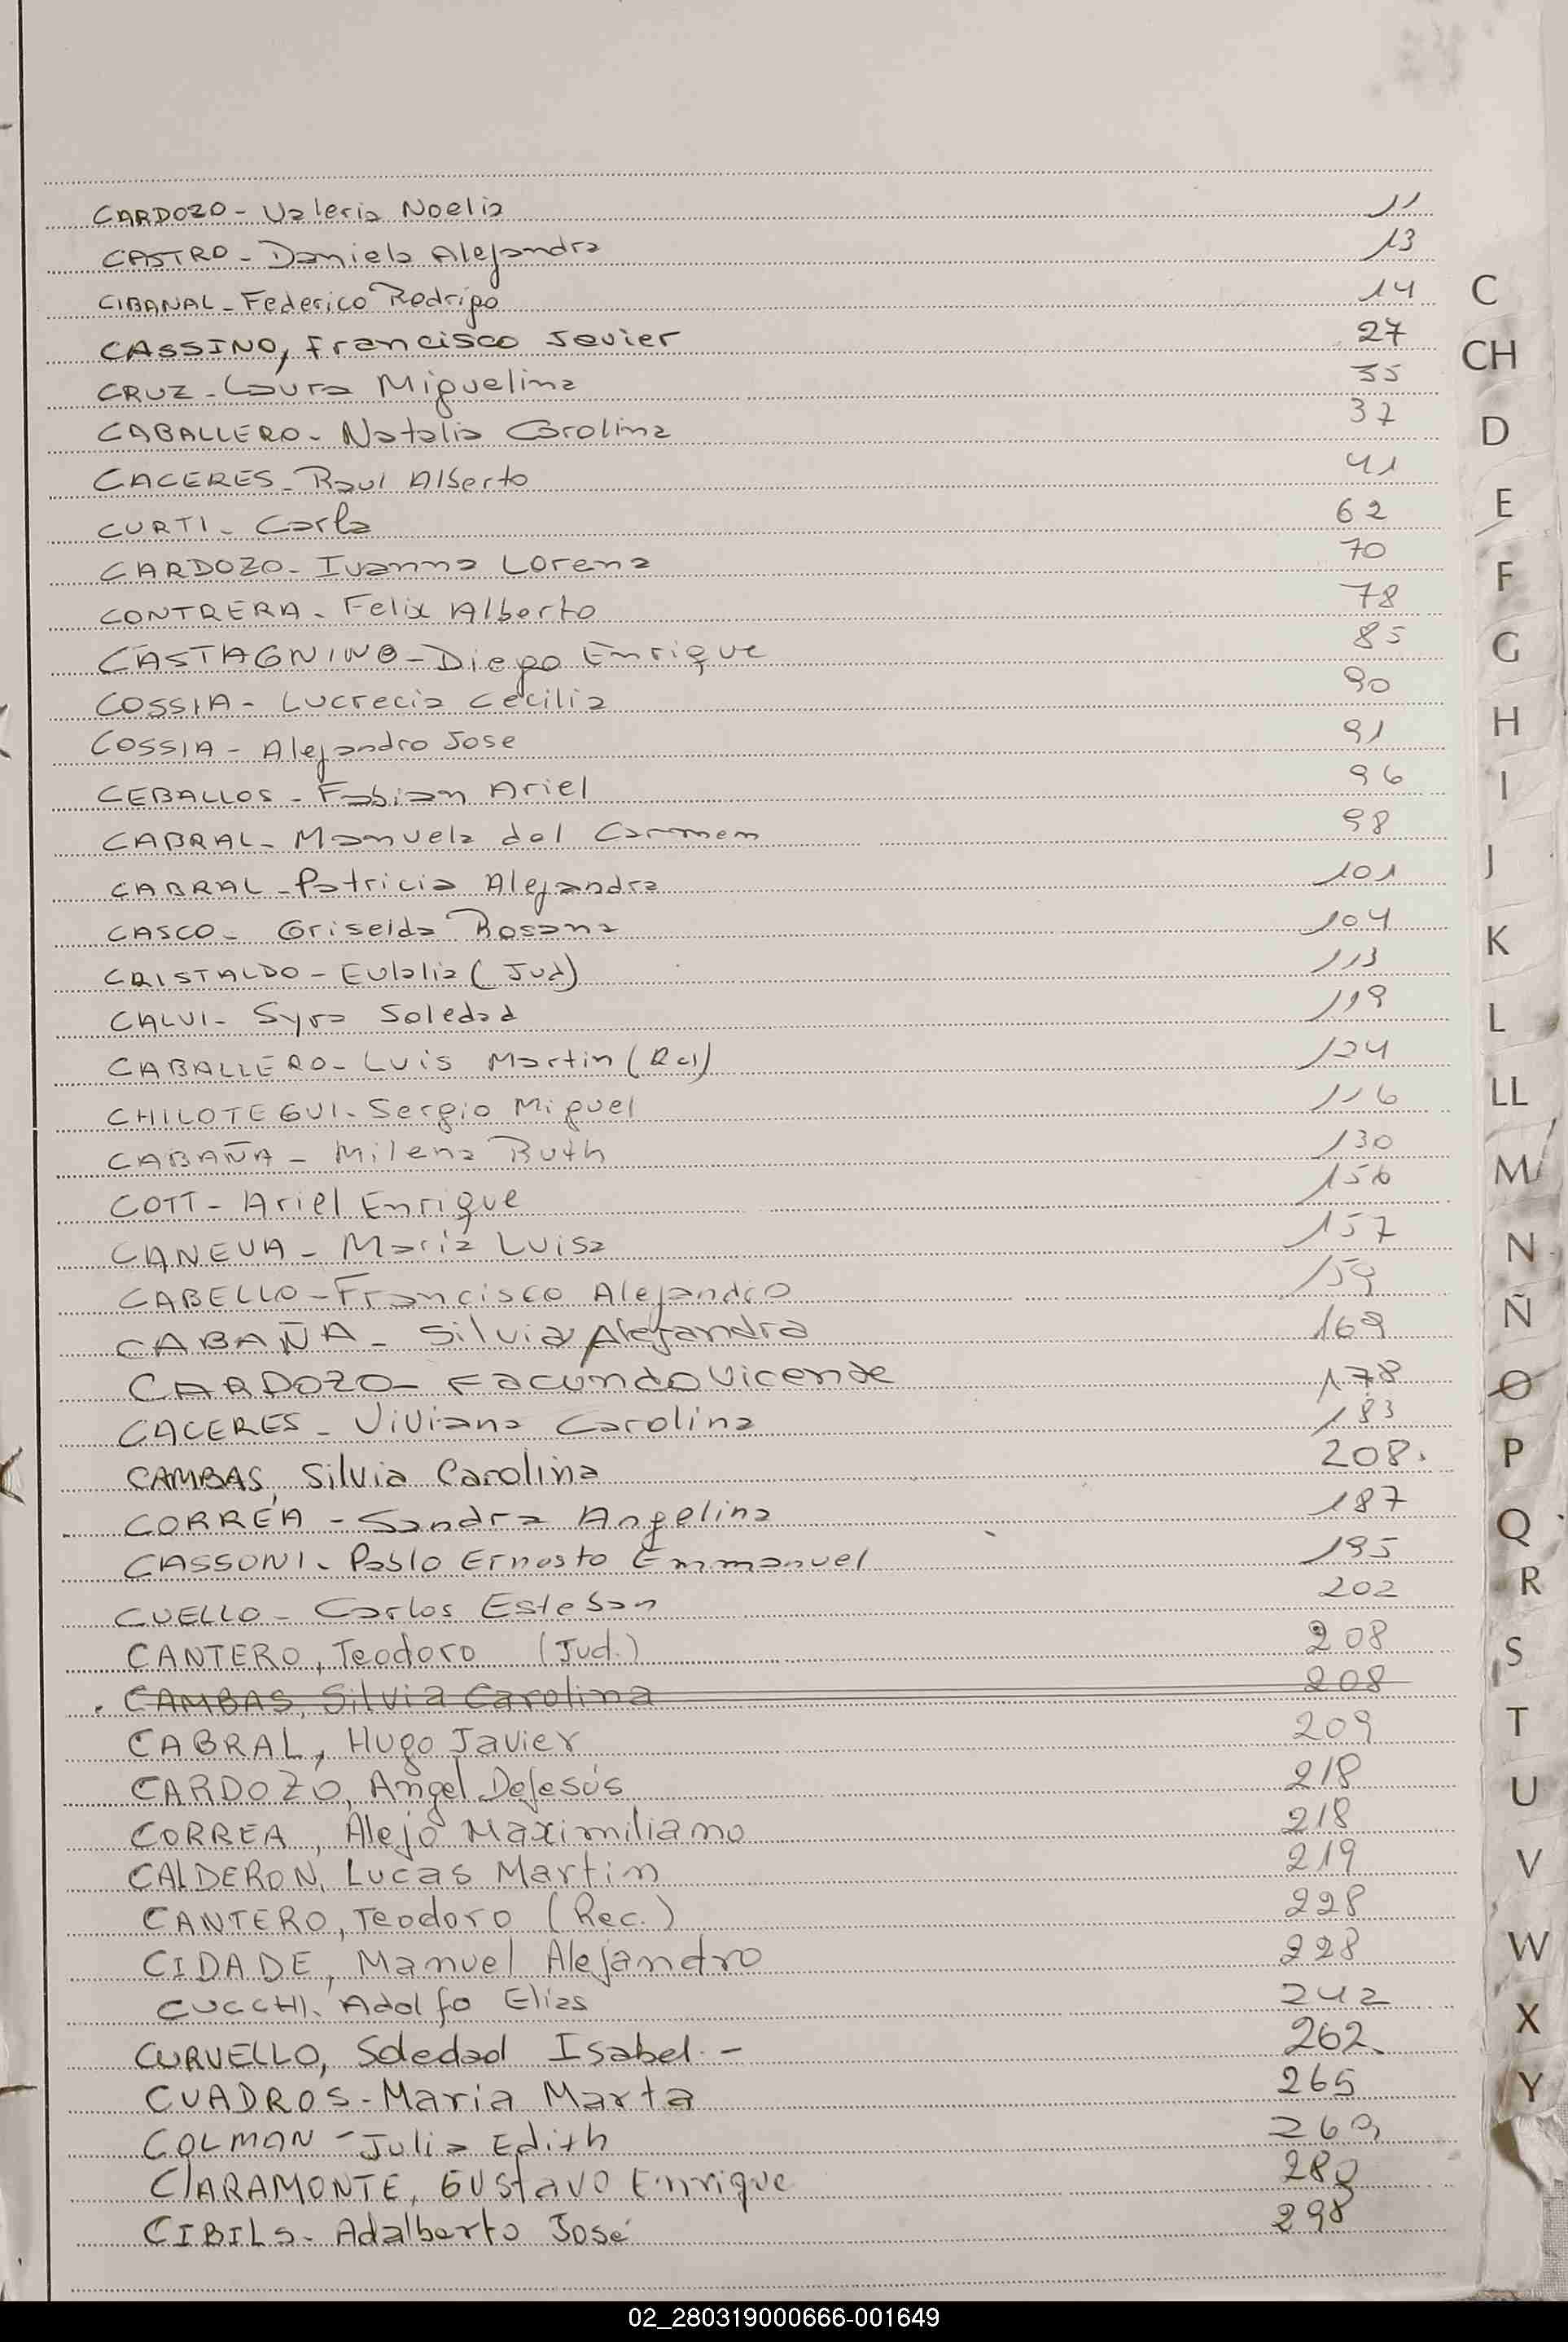 CARDOZO - Valeria Noelia 11
CASTRO - Daniela Alejandra 13
CIBANAL - Federico Rodrigo 14
CASSINO, Francisco Javier 27
CRUZ - Laura Miguelina 35
CABALLERO - Natalia Carolina 37
CACERES - Raul Alberto 41
CURTI - Carla 62
CARDOZO - Ivanna Lorena 70
CONTRERA - Felix Alberto 78
CASTAGNINO - Diego Enrique 85
COSSIA - Lucrecia Cecilia 90
COSSIA - Alejandro Jose 91
CEBALLOS - Fabian Ariel 96
CABRAL - Manuela del Carmen 98
CABRAL - Patricia Alejandra 101
CASCO - Griselda Rosana 104
CRISTALDO - Eulalia (Jud) 113
CALVI - Syra Soledad 119
CABALLERO - Luis Martin (Rcl) 124
CHILOTEGUI - Sergio Miguel 116
CABAÑA - Milena Ruth 130
COTT - Ariel Enrique 156
CANEVA - María Luisa 157
CABELLO - Francisco Alejandro 159
CABAÑA - Silvia Alejandra 169
CARDOZO - Facundo Vicente 178
CACERES - Viviana Carolina 183
CAMBAS, Silvia Carolina 208.
CORREA - Sandra Angelina 187
CASSONI - Pablo Ernesto Emmanuel 195
CUELLO - Carlos Esteban 202
CANTERO, Teodoro (Jud.) 208
CAMBAS, Silvia Carolina 208
CABRAL, Hugo Javier 209
CARDOZO, Angel DeJesús 218
CORREA, Alejo Maximiliano 218
CALDERON, Lucas Martin 219
CANTERO, Teodoro (Rec.) 228
CIDADE, Manuel Alejandro 228
CUCCHI, Adolfo Elias 242
CURVELLO, Soledad Isabel - 262
CUADROS - Maria Marta 265
COLMAN - Julia Edith 269
CLARAMONTE, Gustavo Enrique 280
CIBILS - Adalberto José 298
C
CH
D
E
F
G
H
I
J
K
L
LL
M
N
Ñ
O
P
Q
R
S
T
U
V
W
X
Y
02_280319000666-001649